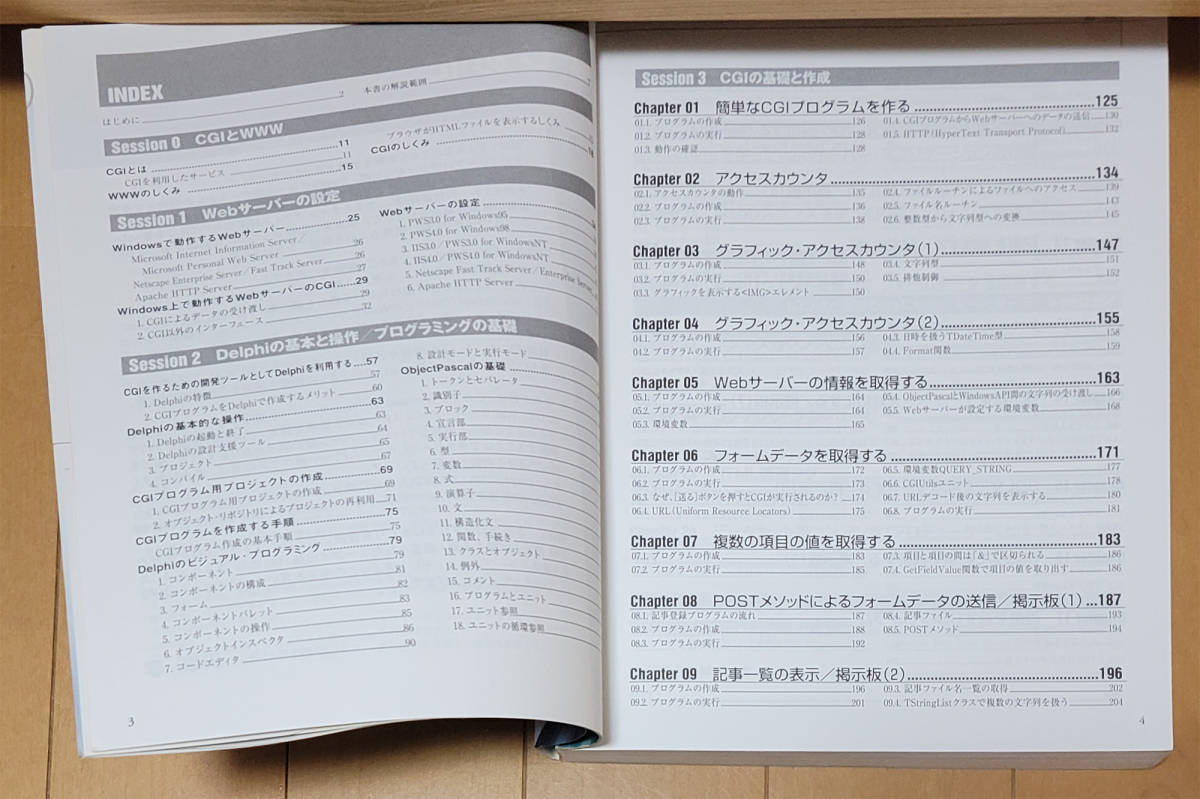 INDEX
はじめに 2
本書の解説範囲
Session 0 CGIとWWW
CGIとは 11
CGIを利用したサービス 11
WWWのしくみ 15
ブラウザがHTMLファイルを表示するしくみ
CGIのしくみ
Session 1 Webサーバーの設定
Windowsで動作するWebサーバー 25
Microsoft Internet Information Server/
Microsoft Personal Web Server 26
Netscape Enterprise Server/Fast Track Server 26
Apache HTTP Server 27
Windows上で動作するWebサーバーのCGI 29
1. CGIによるデータの受け渡し 29
2. CGI以外のインターフェース 32
Webサーバーの設定
1. PWS3.0 for Windows95
2. PWS4.0 for Windows98
3. IIS3.0/PWS3.0 for WindowsNT
4. IIS4.0/PWS4.0 for WindowsNT
5. Netscape Fast Track Server/Enterprise
6. Apache HTTP Server
Session 2 Delphiの基本と操作/プログラミングの基礎
CGIを作るための開発ツールとしてDelphiを利用する 57
1. Delphiの特徴 57
2. CGIプログラムをDelphiで作成するメリット 60
Delphiの基本的な操作 63
1. Delphiの起動と終了 63
2. Delphiの設計支援ツール 64
3. プロジェクト 65
4. コンパイル 67
CGIプログラム用プロジェクトの作成 69
1. CGIプログラム用プロジェクトの作成 69
2. オブジェクト・リポジトリによるプロジェクトの再利用 71
CGIプログラムを作成する手順 75
CGIプログラム作成の基本手順 75
Delphiのビジュアル・プログラミング 79
1. コンポーネント 79
2. コンポーネントの構成 81
3. フォーム 82
4. コンポーネントパレット 83
5. コンポーネントの操作 85
6. オブジェクトインスペクタ 86
7. コードエディタ 90
8. 設計モードと実行モード
ObjectPascalの基礎
1. トークンとセパレータ
2. 識別子
3. ブロック
4. 宣言部
5. 実行部
6. 型
7. 変数
8. 式
9. 演算子
10. 文
11. 構造化文
12. 関数、手続き
13. クラスとオブジェクト
14. 例外
15. コメント
16. プログラムとユニット
17. ユニット参照
18. ユニットの循環参照
3
Session 3 CGIの基礎と作成
Chapter 01 簡単なCGIプログラムを作る 125
01.1. プログラムの作成 126
01.2. プログラムの実行 128
01.3. 動作の確認 128
01.4. CGIプログラムからWebサーバーへのデータの送信 130
01.5. HTTP(HyperText Transport Protocol) 132
Chapter 02 アクセスカウンタ 134
02.1. アクセスカウンタの動作 135
02.2. プログラムの作成 136
02.3. プログラムの実行 138
02.4. ファイルルーチンによるファイルへのアクセス 139
02.5. ファイル名ルーチン 143
02.6. 整数型から文字列型への変換 145
Chapter 03 グラフィック・アクセスカウンタ(1) 147
03.1. プログラムの作成 148
03.2. プログラムの実行 150
03.3. グラフィックを表示する<IMG>エレメント 150
03.4. 文字列型 151
03.5. 排他制御 152
Chapter 04 グラフィック・アクセスカウンタ(2) 155
04.1. プログラムの作成 156
04.2. プログラムの実行 157
04.3. 日時を扱うTDateTime型 158
04.4. Format関数 159
Chapter 05 Webサーバーの情報を取得する 163
05.1. プログラムの作成 164
05.2. プログラムの実行 164
05.3. 環境変数 165
05.4. ObjectPascalとWindowsAPI間の文字列の受け渡し 166
05.5. Webサーバーが設定する環境変数 168
Chapter 06 フォームデータを取得する 171
06.1. プログラムの作成 172
06.2. プログラムの実行 173
06.3. なぜ、[送る]ボタンを押すとCGIが実行されるのか? 174
06.4. URL(Uniform Resource Locators) 175
06.5. 環境変数QUERY_STRING 177
06.6. CGIUtilsユニット 178
06.7. URLデコード後の文字列を表示する 180
06.8. プログラムの実行 181
Chapter 07 複数の項目の値を取得する 183
07.1. プログラムの作成 183
07.2. プログラムの実行 185
07.3. 項目と項目の間は「&」で区切られる 186
07.4. GetFieldValue関数で項目の値を取り出す 186
Chapter 08 POSTメソッドによるフォームデータの送信/掲示板(1) 187
08.1. 記事登録プログラムの流れ 187
08.2. プログラムの作成 188
08.3. プログラムの実行 192
08.4. 記事ファイル 193
08.5. POSTメソッド 194
Chapter 09 記事一覧の表示/掲示板(2) 196
09.1. プログラムの作成 196
09.2. プログラムの実行 201
09.3. 記事ファイル名一覧の取得 202
09.4. TStringListクラスで複数の文字列を扱う 204
4